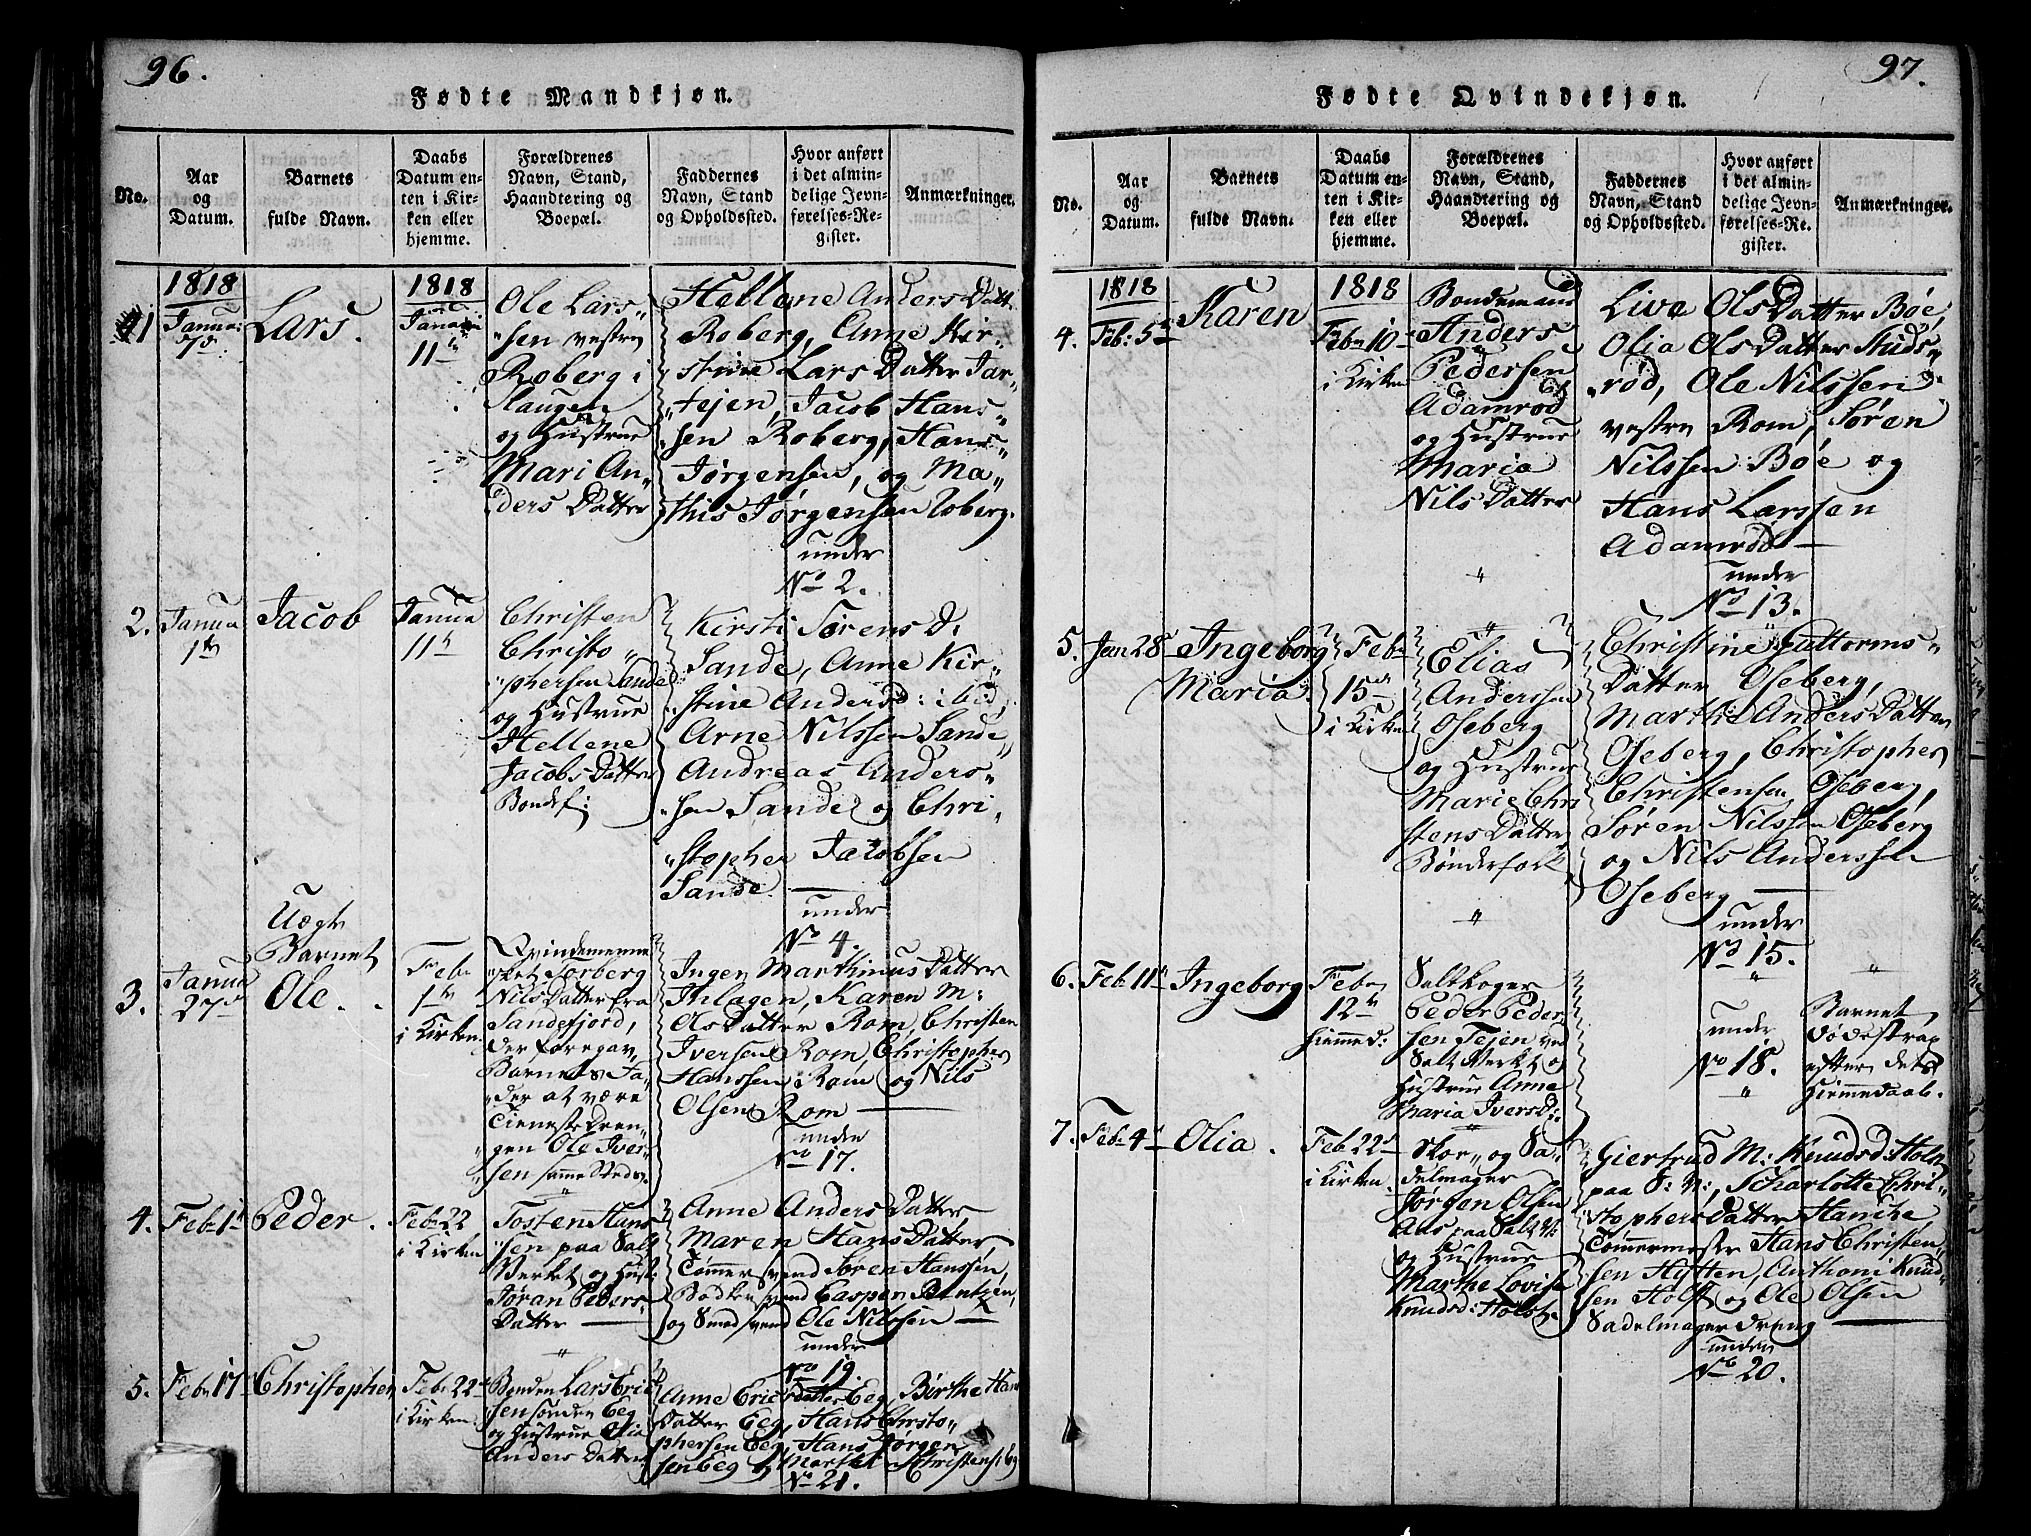 96.
Fødte Mandkjøn.
No.
Aar
og
Datum.
Barnets
fulde Navn.
Daabs
Datum en-
ten i Kir-
ken eller
hjemme.
Forældrenes
Navn, Stand,
Haandtering og
Boepæl.
Faddernes
Navn, Stand
og Opholdssted.
Hvor anført
i det almin-
delige Jevn-
førelses-Re-
gister.
Anmærkninger.
1
1818
Janua:
7de
Lars.
1818
Janua
11te
Ole Lars„
„sen vestre
Roberg i
Slaugen
og Hustrue
Mari An„
ders Datter
Hellene Anders Datt.
Roberg, Anne Kir„
„stine Lars Datter Jar„
„tejen, Jacob Hans„
„sen Roberg, Hans
Jørgensen, og Ma„
„this Jørgensen Roberg.
under
No 2.
2.
Janua
1te
Jacob
Janua
11te
Christen
Christo„
„phersen Sande
og Hustrue
Hellene
Jacobs Datter
Bondef:
Kirsti Sørens D:
Sande, Anne Kir„
„stine Andersd: ibid,
Arne Nilssen Sande
Andreas Anders„
„sen Sande og Chri„
„stopher Jacobsen
Sande.
under
No 4.
3.
Janua
27de
Uægte
Barnet
Ole.
Feb:
1te
i Kirken.
Qvindemenne„
„sket Sørberg
Nils Datter fra
Sandefjord,
der foregav
Barnets Fa„
„der at være
Tieneste Dren„
„gen Ole Iver„
„sen samme Steds.
Ingen Marthinus Datter
Ihlagen, Karen M:
Ols Datter Rom, Christen
Iversen Rom, Christopher
Hanssen Rom og Nils
Olsen Rom
under
No 17.
4.
Feb: 1te
Peder.
Feb: 22
i Kirken
Tosten Hans
„sen paa Salt
Verket og Hust:
Jøran Peders
Datter
Anne Anders Datter
Maren Hans Datter
Tømmersvend Søren Hanssen,
Bødkersvend Casper Bentzen,
og Smedsvend Ole Nilssen
under
No 19.
5.
Feb: 17
Christopher
Feb: 22de
i Kirken.
Bonden Lars Eric
„sen søndre Eeg
og Hustrue Olia
Anders Datter
Anne Ericsdatter Eeg, Birthe Han
Datter Eeg, Hans Christo„
phersen Eeg, Hans Jørgen
sen Eeg Christens: Eeg
No 21.
97.
Fødte Qvindekjøn.
No.
Aar
og
Datum.
Barnets
fulde Navn.
Daabs
Datum en-
ten i Kir-
ken eller
hjemme.
Forældrenes
Navn, Stand,
Haandtering og
Boepæl.
Faddernes
Navn, Stand
og Opholdssted.
Hvor anført
i det almin-
delige Jevn-
førelses-Re-
gister.
Anmærkninger.
4.
1818
Feb: 5te
Karen
1818
Feb: 10de
i Kirken
Bondemand
Anders
Pedersen
Adamrød
og Hustrue
Maria
Nils Datter
Live Ols Datter Bøe,
Olia Ols Datter Studs„
„rød, Ole Nilssen
vestre Rom, Søren
Nilssen Bøe og
Hans Larssen
Adamrød
under
No 13.
5.
Jan 28
Ingeborg
Maria.
Feb:
15de
i Kirken
Elias
Anderssen
Oseberg
og Hustrue
Marie Chri
stens Datter
Bønderfolk
Christine Guttorms„
Datter Oseberg,
Marthe Anders Datter
Oseberg, Christopher
Christensen Oseberg,
Søren Nilssen Oseberg
og Nils Anderssen
Oseberg
under
No 15.
6.
Feb. 11te
Ingeborg
Feb:
12te
hiemmed:
Saltkoger
Peder Peder
sen Tejen ved
Salt Verket og
Hustrue Anne
Maria Iversd:
under
No 18.
Barnet
døde strax
efter dets
Hiemmedaab.
7.
Feb. 4de
Olia.
Feb: 22de
i Kirken.
Skoe„ og Sa„
delmager
Jørgen Olsen
Aas paa Salt V:
og Hustrue
Marthe Lovise
Knudsd: Holst.
Giertrud M: Knudsd: Holst
paa S: V:, Scharlotte Chri„
stophers Datter Hanche
Tømmermester Hans Christen„
sen Hytten, Anthoni Knud„
sen Holst og Ole Olsen
Sadelmager dreng
under
No 20.